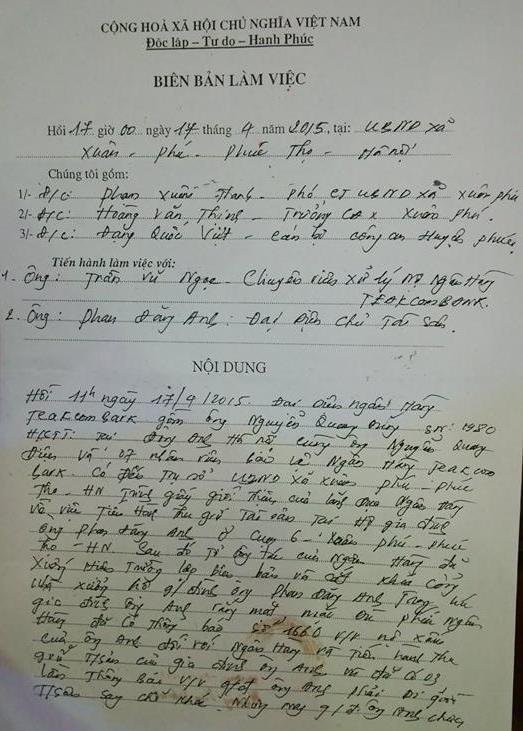 CỘNG HOÀ XÃ HỘI CHỦ NGHĨA VIỆT NAM
Độc lập – Tự do – Hạnh Phúc
BIÊN BẢN LÀM VIỆC
Hồi 17 giờ 00 ngày 17 tháng 9 năm 2015, tại: UBND xã
Xuân - Phú - Phúc Thọ - Hà Nội
Chúng tôi gồm:
1/- Đ/C: Phan Xuân Thanh - Phó CT UBND xã Xuân Phú
2/- Đ/C: Hoàng Văn Thịnh - Trưởng CA x Xuân Phú.
3/- Đ/C: Đặng Quốc Việt - cán bộ công an Huyện phúc thọ
Tiến hành làm việc với:
1. Ông: Trần Vũ Ngọc - Chuyên viên xử lý nợ Ngân Hàng
TEAKCOMBANK.
2. Ông: Phan Đăng Anh: Đại Diện Chủ Tài Sản.
NỘI DUNG
Hồi 11h ngày 17/9/2015 Đại diện ngân hàng
Teakcombank gồm ông Nguyễn Quang SN: 1980
HKTT: Đông Anh Hà nội cùng ông Nguyễn Quang
và 07 nhân viên bảo vệ Ngân Hàng Teakcom
bank. Có đến Trụ sở UBND xã Xuân phú - phúc
Thọ - HN Trình giấy giới thiệu của Ngân Hàng
Về việc Tiến Hành Thu giữ Tài sản Tại Hộ gia đình
ông Phan Đăng Anh ở cụm 6 - Xuân phú - phúc
Thọ HN. Sau đó Tổ công tác của Ngân Hàng đã
Xuống Hiện Trường lập biên bản và khóa cổng
nhà xưởng hộ g/đình ông Phan Đăng Anh Trong khi
gia đình ông Anh vắng mặt phía Ngân
Hàng đã có Thông báo số 1660 V/v nợ xấu
của ông Anh đối với Ngân Hàng và Tiến hành Thu
giữ T/sản của gia đình ông Anh và đã có 03
lần Thông báo V/v g/đ ông Anh phải Di
T/sản sang chỗ khác. Nhưng g/đ ông Anh chưa